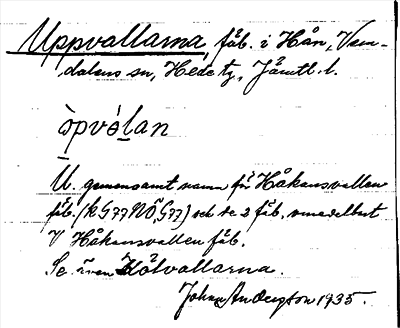 Uppvallarna, fäb. i Hån, Vem-
dalens sn, Hede tg, Jämtl. l.
òpválan
U. gemensamt namn för Håkansvallen
fäb. (k G77 NÖ, G77) och de 2 fäb. omedelbart
V Håkansvallen fäb.
Se även Hötvallarna.
Johan Anderson 1935.